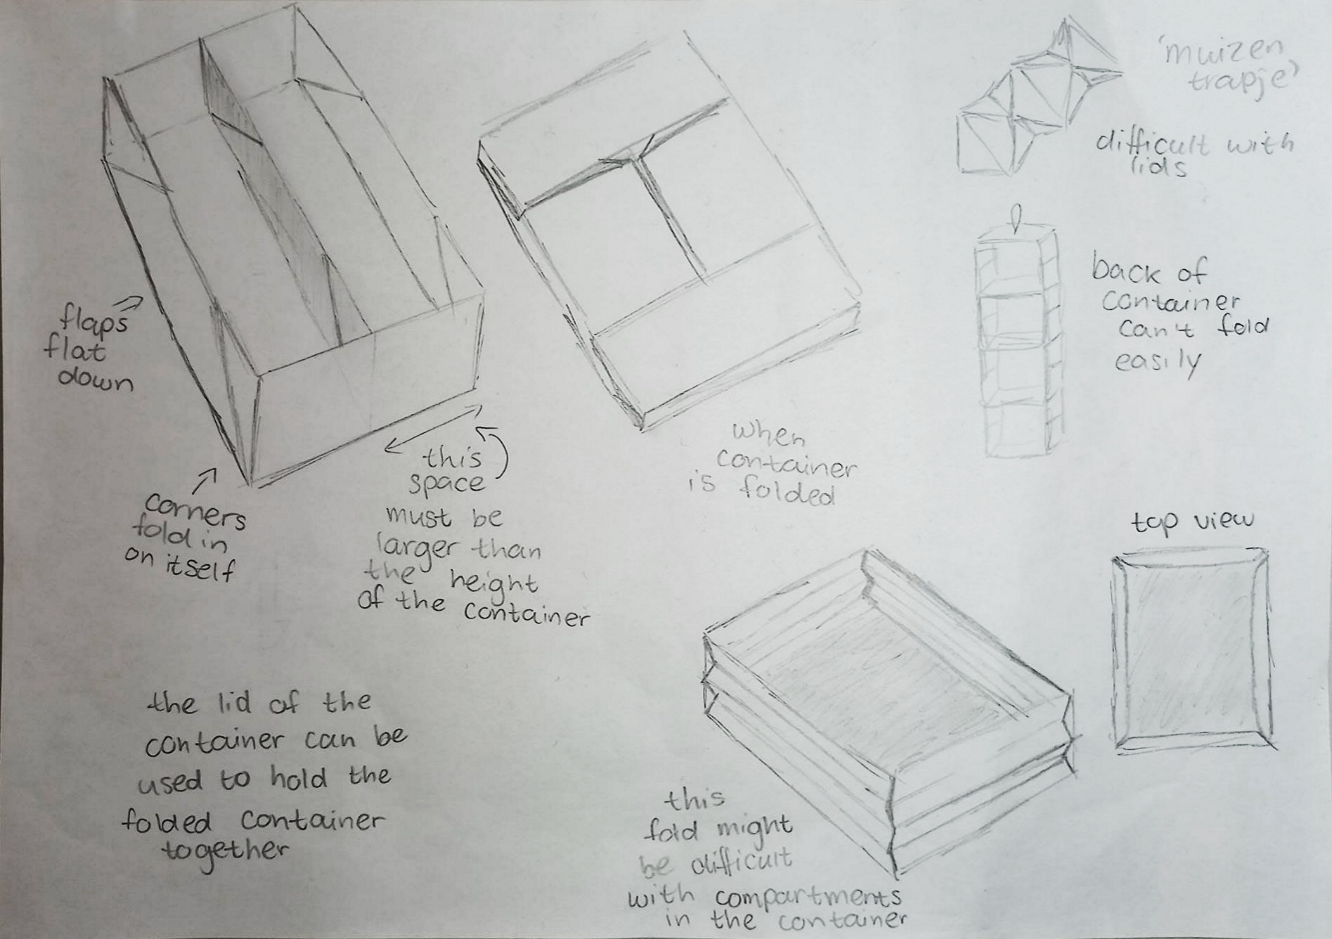 'muizen
trapje'
difficult with
lids
back of
container
can't fold
easily
flaps
flat
down
corners
fold in
on itself
this
space
must be
larger than
the height
of the container
when
container
is folded
top view
the lid of the
container can be
used to hold the
folded container
together
this
fold might
be difficult
with compartments
in the container